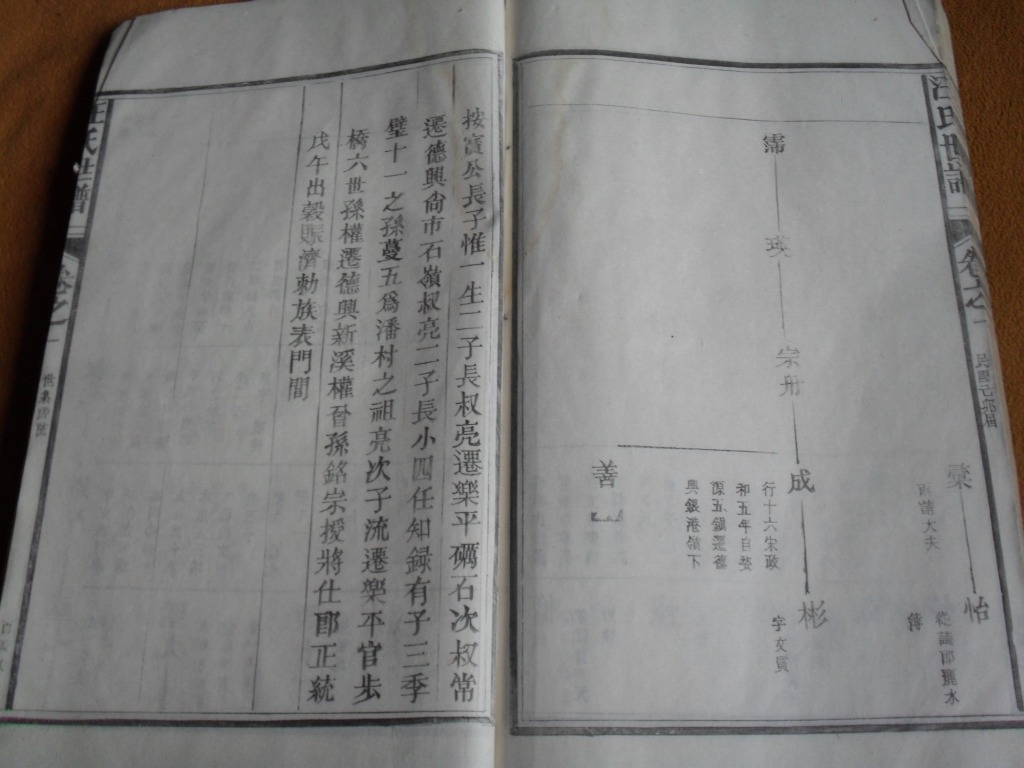 汪氏世譜
卷之一
棠
怡
從議郎麗水
簿
霈
英
宗舟
成
行十六宋政
和五年自婺
源五鎮遷德
興銀港嶺下
彬
字文質
善
按實公長子惟一生二子長叔亮遷樂平礪石次叔常
遷德興尙市石嶺叔亮二子長小四任知録有子三季
璧十一之孫蔓五爲潘村之祖亮次子流遷樂平官步
橋六世孫權遷德興新溪權晉孫銘宗授將仕郎正統
戊午出穀賑濟勅旌表門閭
汪氏世譜
卷之一